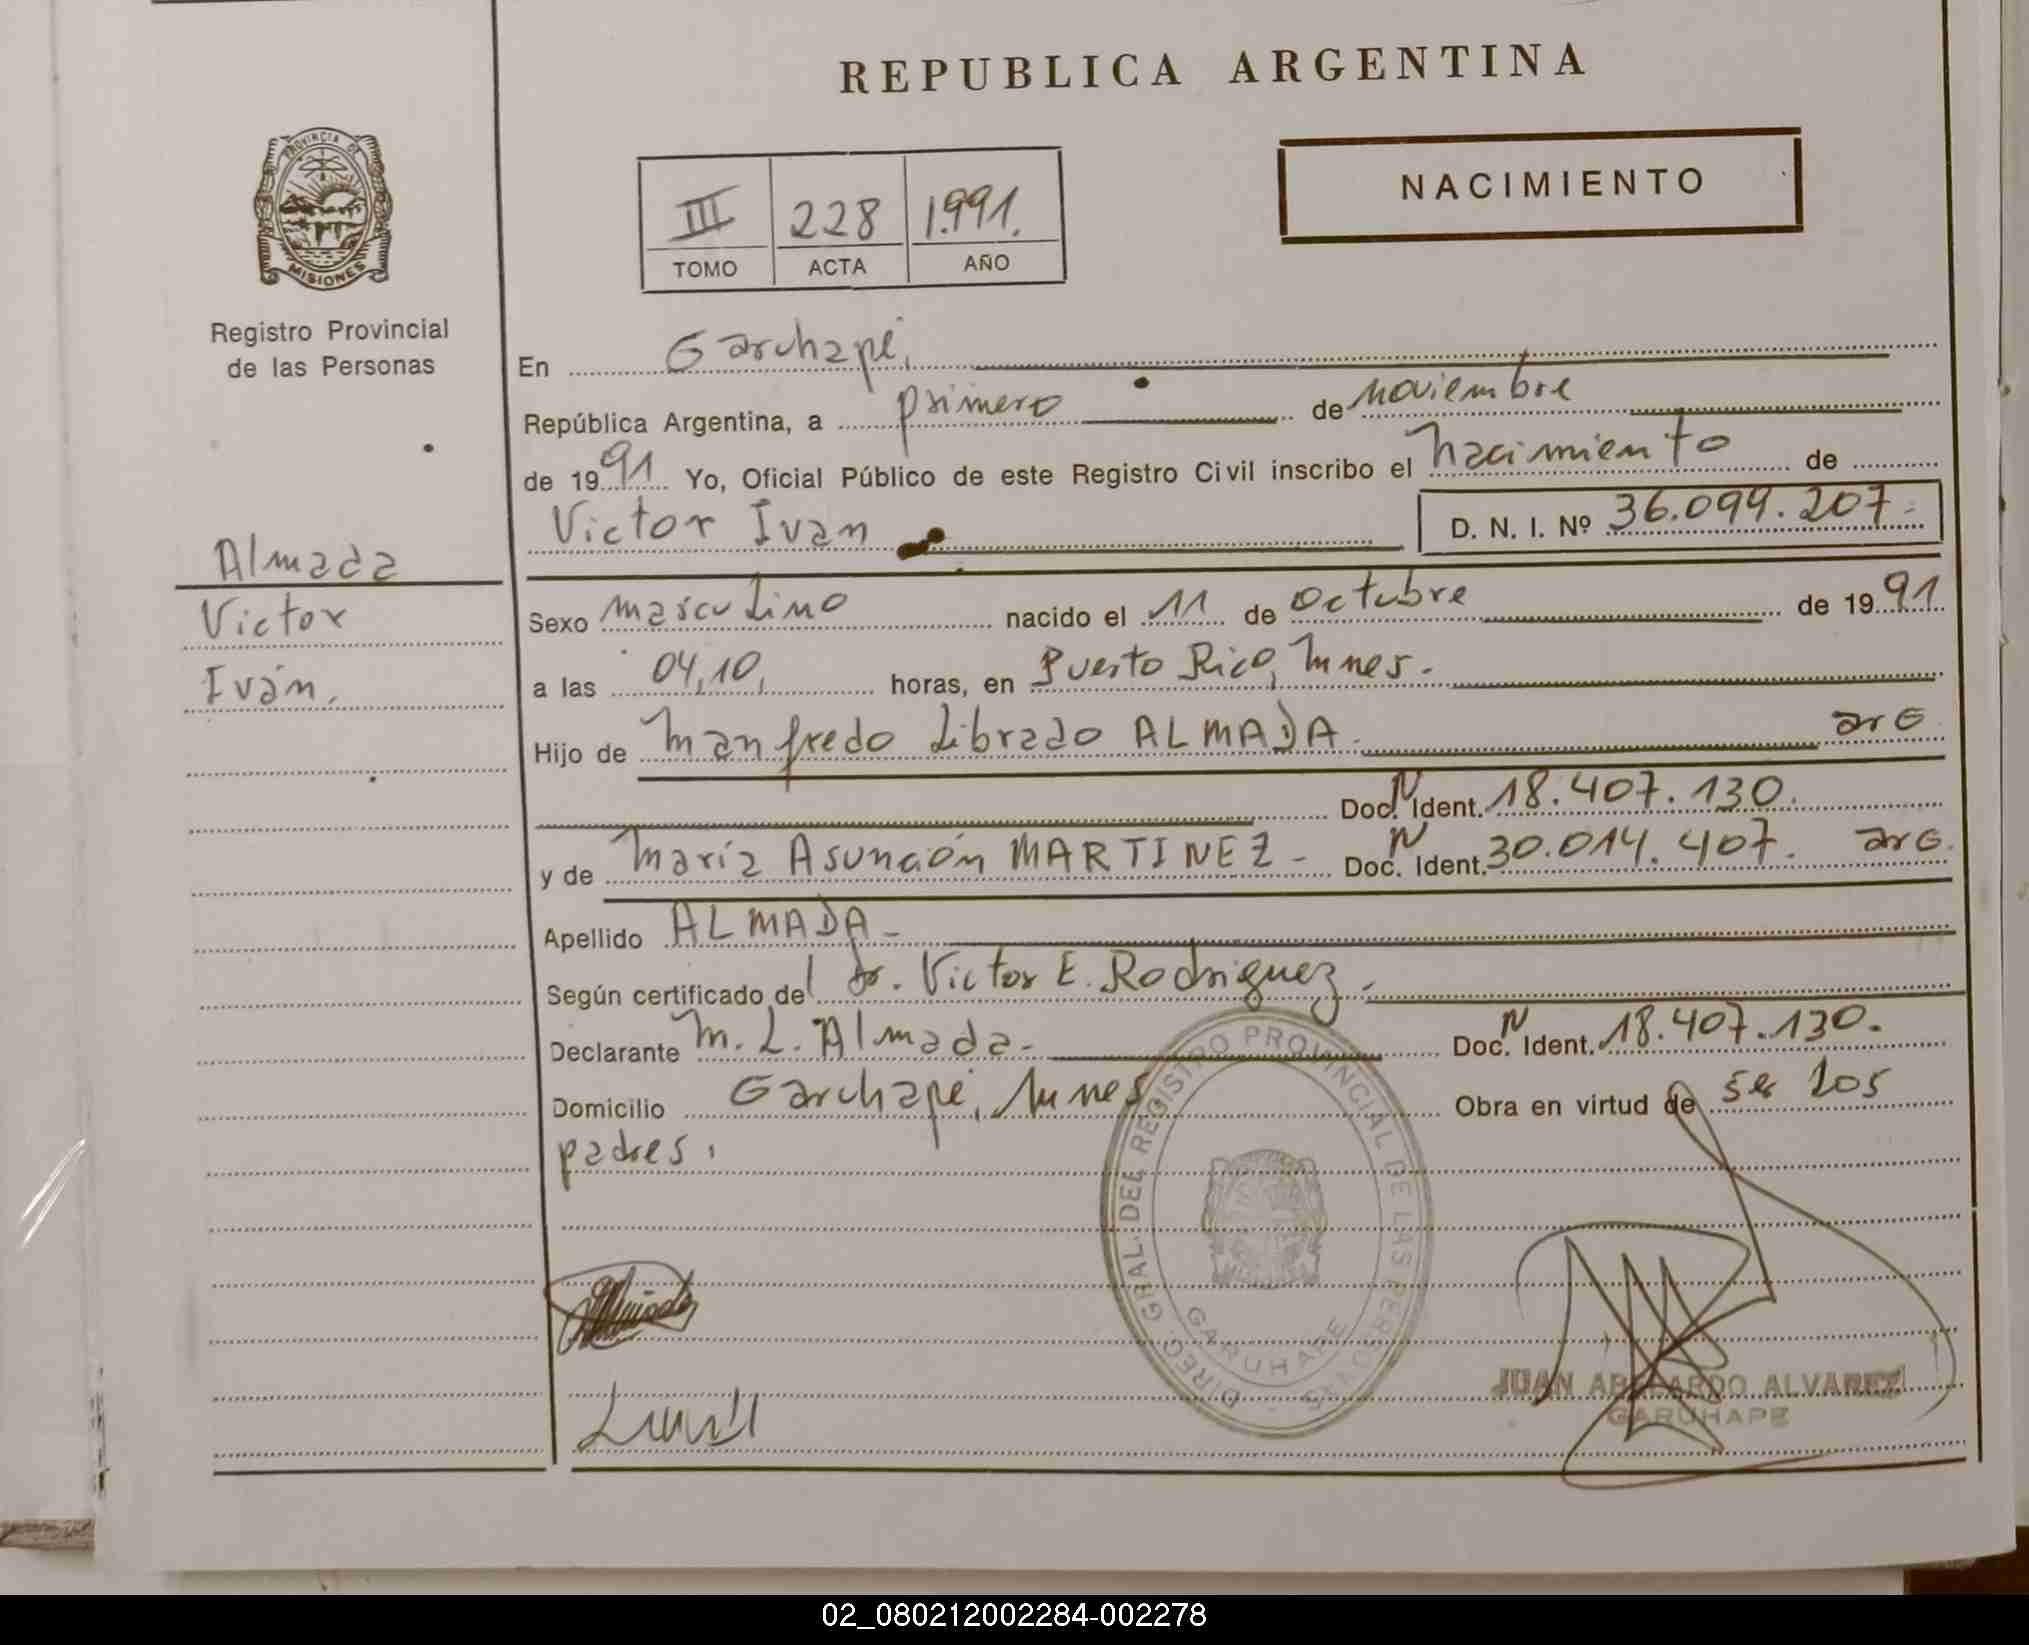 REPUBLICA ARGENTINA
NACIMIENTO
III 228 1.991.
TOMO ACTA AÑO
PROVINCIA DE
MISIONES
Registro Provincial
de las Personas
Almada
Victor
Iván.
En Garuhapé,
República Argentina, a primero de noviembre
de 1991 Yo, Oficial Público de este Registro Civil inscribo el nacimiento de
Victor Ivan D. N. I. Nº 36.099.207-
Sexo masculino nacido el 11 de octubre de 1991
a las 04,10, horas, en Puerto Rico, Mnes.
Hijo de Manfredo Librado ALMADA. arG
Doc. N Ident. 18.407.130.
y de María Asunción MARTINEZ - Doc. N Ident. 30.014.407. arG.
Apellido ALMADA-
Según certificado del dr. Victor E. Rodriguez.
Declarante M. L. Almada- Doc. N Ident. 18.407.130.
Domicilio Garuhapé, Mnes. Obra en virtud de ser los
padres.
DIREC. GRAL. DEL REGISTRO PROVINCIAL DE LAS PERSONAS
GARUHAPE
JUAN ABELARDO ALVAREZ
GARUHAPE
02_080212002284-002278